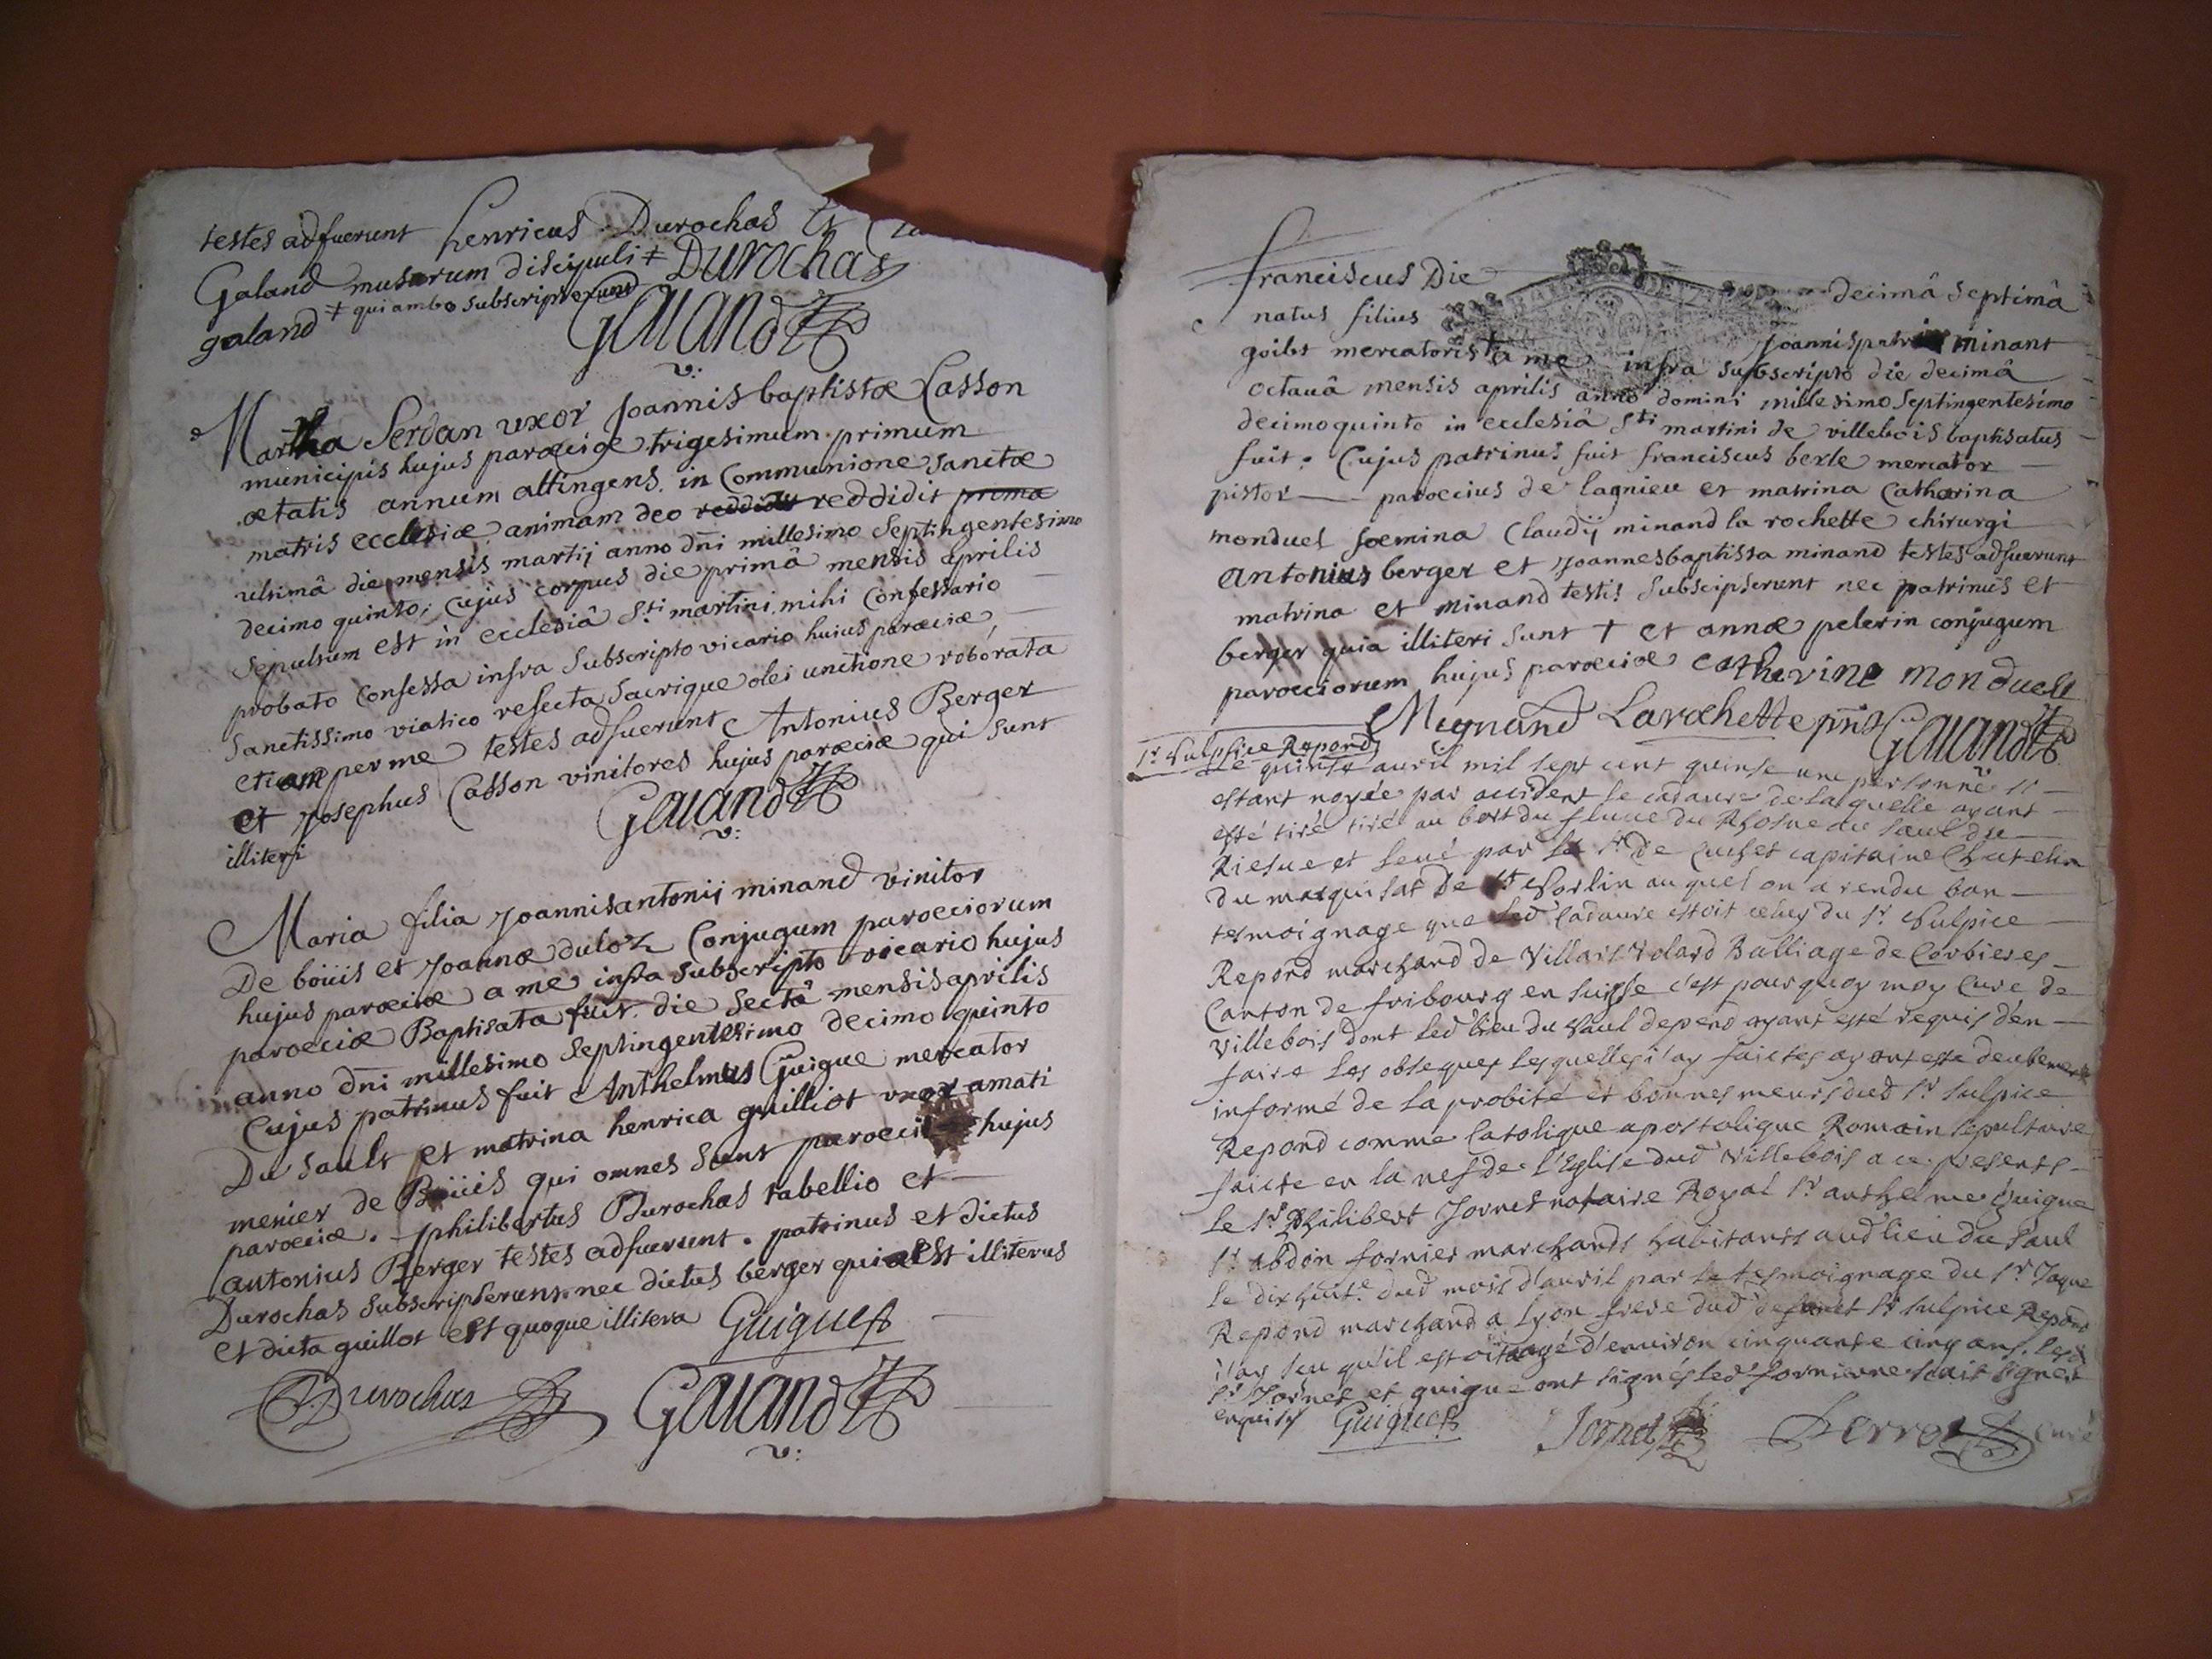 testes adfuerunt henricus Durochas Et
Galand musarum discipuli + Durochas
galand + qui ambo subscripserunt
Galand
v:
Martha Serdan uxor Joannis baptistæ Casson
municipis hujus parœciæ trigesimum primum
ætatis annum attingens in Communione sanctæ
matris ecclesiæ animam deo reddidit reddidit prima
ultimâ die mensis martij anno dñi millesimo septingentesimo
decimo quinto; cujus corpus die primâ mensis aprilis
sepultum est in ecclesiâ Sti martini mihi confessario
probato confessa infra subscripto vicario huius parœciæ,
Sanctissimo viatico refecta sacrique olei unctione roborata
etiam per me testes adfuerunt Antonius Berger
et Josephus Casson vinitores hujus parœciæ qui sunt
illiteri
Galand
v:
Maria filia Joannisantonij minand vinitor
De boüis et Joannæ duloz Conjugum parœciorum
hujus parœciæ a me infra subscripto vicario hujus
parœciæ Baptisata fuit die sectâ mensis aprilis
anno dñi millesimo septingentesimo decimo quinto
Cujus patrinus fuit Anthelmus Guigue mercator
Du sault et matrina henrica guilliot uxor amati
menier de Boüis qui omnes sunt hujus
parœciæ. philibertus Durochas tabellio et
antonius Berger testes adfuerunt. patrinus et dictus
Durochas subscripserunt nec dictus berger quia est illiterus
et dicta guillot est quoque illitera Guigue
Durochas Galand
v:
franciscus Die decimâ septimâ
natus filius Joannis minant
goibt mercatoris + a me infra subscripto die decimâ
octavâ mensis aprilis anno domini millesimo septingentesimo
decimoquinto in ecclesiâ Sti martini de villebois baptisatus
fuit. Cujus patrinus fuit franciscus berle mercator
pistor parœcius de lagnieu et matrina Catharina
monduel fœmina Claudij minand la rochette chirurgi
Antonius berger et Joannesbaptista minand testes adfuerunt
matrina et minand testis subscipserunt nec patrinus et
berger quia illiteri sunt + et annæ pelerin conjugum
parœciorum hujus parœciæ catherine monduel
Mignand Larochette pñt Galand
Sr Sulpice Repond
Le quinse auril mil sept cent quinse une personne s
estant noyée par accident le cadaure de laquelle ayant
esté tiré tiré au bort du fleuue du Rhosne au Saul du
Riesue et leué par le Sr De Cuchet capitaine Chatelin
du marquisat de St Sorlin auquel on a rendu bon
tesmoignage que led cadaure estoit celuy du Sr Sulpice
Repond marchand de Villars Volard Balliage de Corbieres
Canton de fribourg en Suisse c'est pourquoy moy Curé de
villebois dont led lieu du Saul depend ayant esté requis d'en
faire les obseques lesquelles i'ay faictes ayant esté deubement
informé de la probité et bonnes meurs dud Sr Sulpice
Repond comme Catolique apostolique Romain sepulture
faicte en la nef de l'Eglise dud Villebois a ce presents
le Sr Philibert Jornet notaire Royal Sr anthelme Guigue
Sr abdon fornier marchands habitants aud lieu du Saul
le dix huite dud mois d'auril par le tesmoignage du Sr Jaque
Repond marchand a Lyon frere dud defunct Sr Sulpice Repond
i'ay seu qu'il estoit aagé d'enuiron cinquante cinq ans. Lesd
Sr Jornet et guigue ont signés led fornier ne scait signer
enquis Guigue Jornet Perrot curé